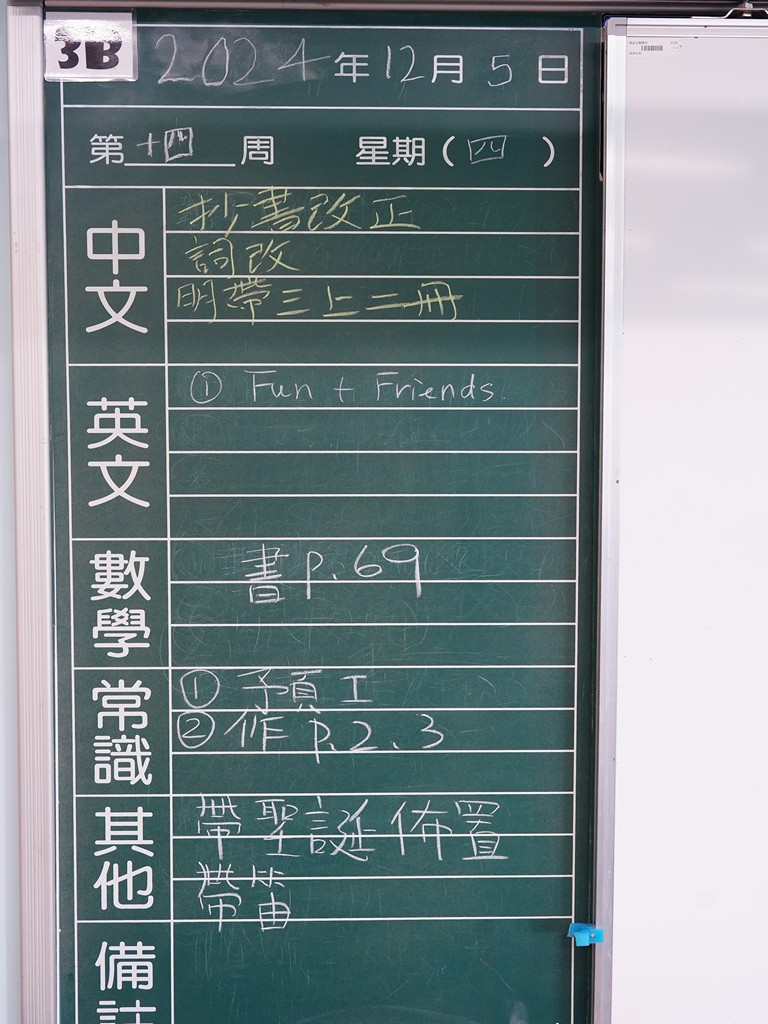 3B 2024年12月5日
第十四周 星期(四)
中文
抄書改正
詞改
明帶三上二冊
英文
① Fun + Friends
數學
書 p.69
常識
① 預 I
② 作 p.2、3
其他
帶聖誕佈置
帶笛
備註